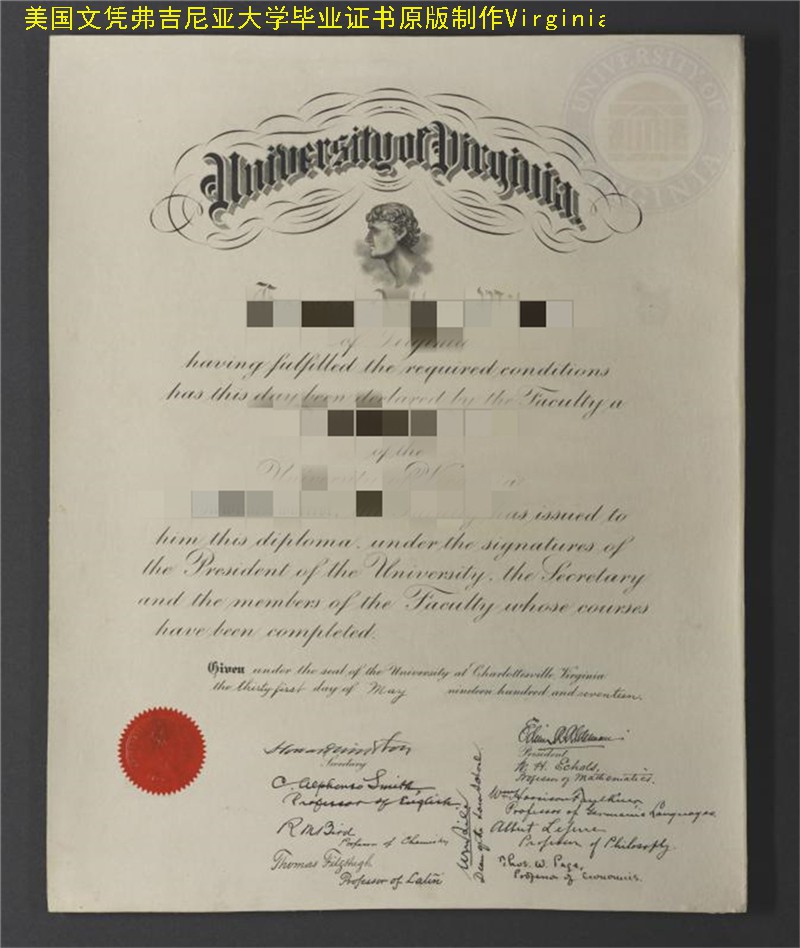 美国文凭弗吉尼亚大学毕业证书原版制作Virginia
UNIVERSITY OF
VIRGINIA
University of Virginia.
of Virginia
having fulfilled the required conditions
has this day been declared by the Faculty a
of the
University
as issued to
him this diploma, under the signatures of
the President of the University, the Secretary
and the members of the Faculty whose courses
have been completed.
Given under the seal of the University at Charlottesville, Virginia
the thirty first day of May nineteen hundred and seventeen.
Secretary
C. Alphonso Smith,
Professor of English.
R M Bird
Professor of Chemistry
Thomas FitzHugh
Professor of Latin
Edwin A Alderman
President.
W. H. Echols,
Professor of Mathematics.
Wm Harrison Faulkner
Professor of Germanic Languages
Albert Lefevre
Professor of Philosophy.
Thos. W. Page,
Professor of Economics.